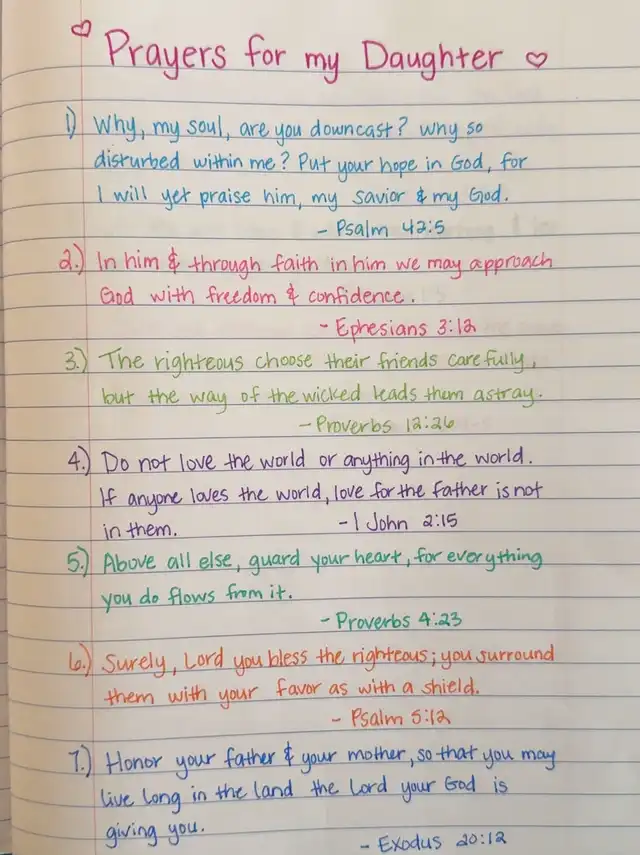 Prayers for my Daughter
1) Why, my soul, are you downcast? Why so
disturbed within me? Put your hope in God, for
I will yet praise him, my savior & my God.
- Psalm 42:5
2.) In him & through faith in him we may approach
God with freedom & confidence.
- Ephesians 3:12
3.) The righteous choose their friends carefully,
but the way of the wicked leads them astray.
- Proverbs 12:26
4.) Do not love the world or anything in the world.
If anyone loves the world, love for the father is not
in them. - 1 John 2:15
5.) Above all else, guard your heart, for everything
you do flows from it.
- Proverbs 4:23
6.) Surely, Lord you bless the righteous; you surround
them with your favor as with a shield.
- Psalm 5:12
7.) Honor your father & your mother, so that you may
live long in the land the Lord your God is
giving you.
- Exodus 20:12